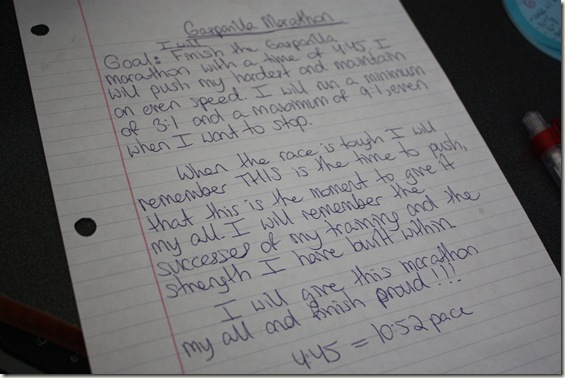 Gasparilla Marathon
I will
Goal: Finish the Gasparilla
marathon with a time of 4:45 I
will push my hardest and maintain
an even speed. I will run a minimum
of 3:1 and a maximum of 9:1, even
when I want to stop.
When the race is tough I will
remember THIS is the time to push,
that this is the moment to give it
my all. I will remember the
successes of my training and the
strength I have built within.
I will give this marathon
my all and finish proud!!!
4:45 = 10:52 pace